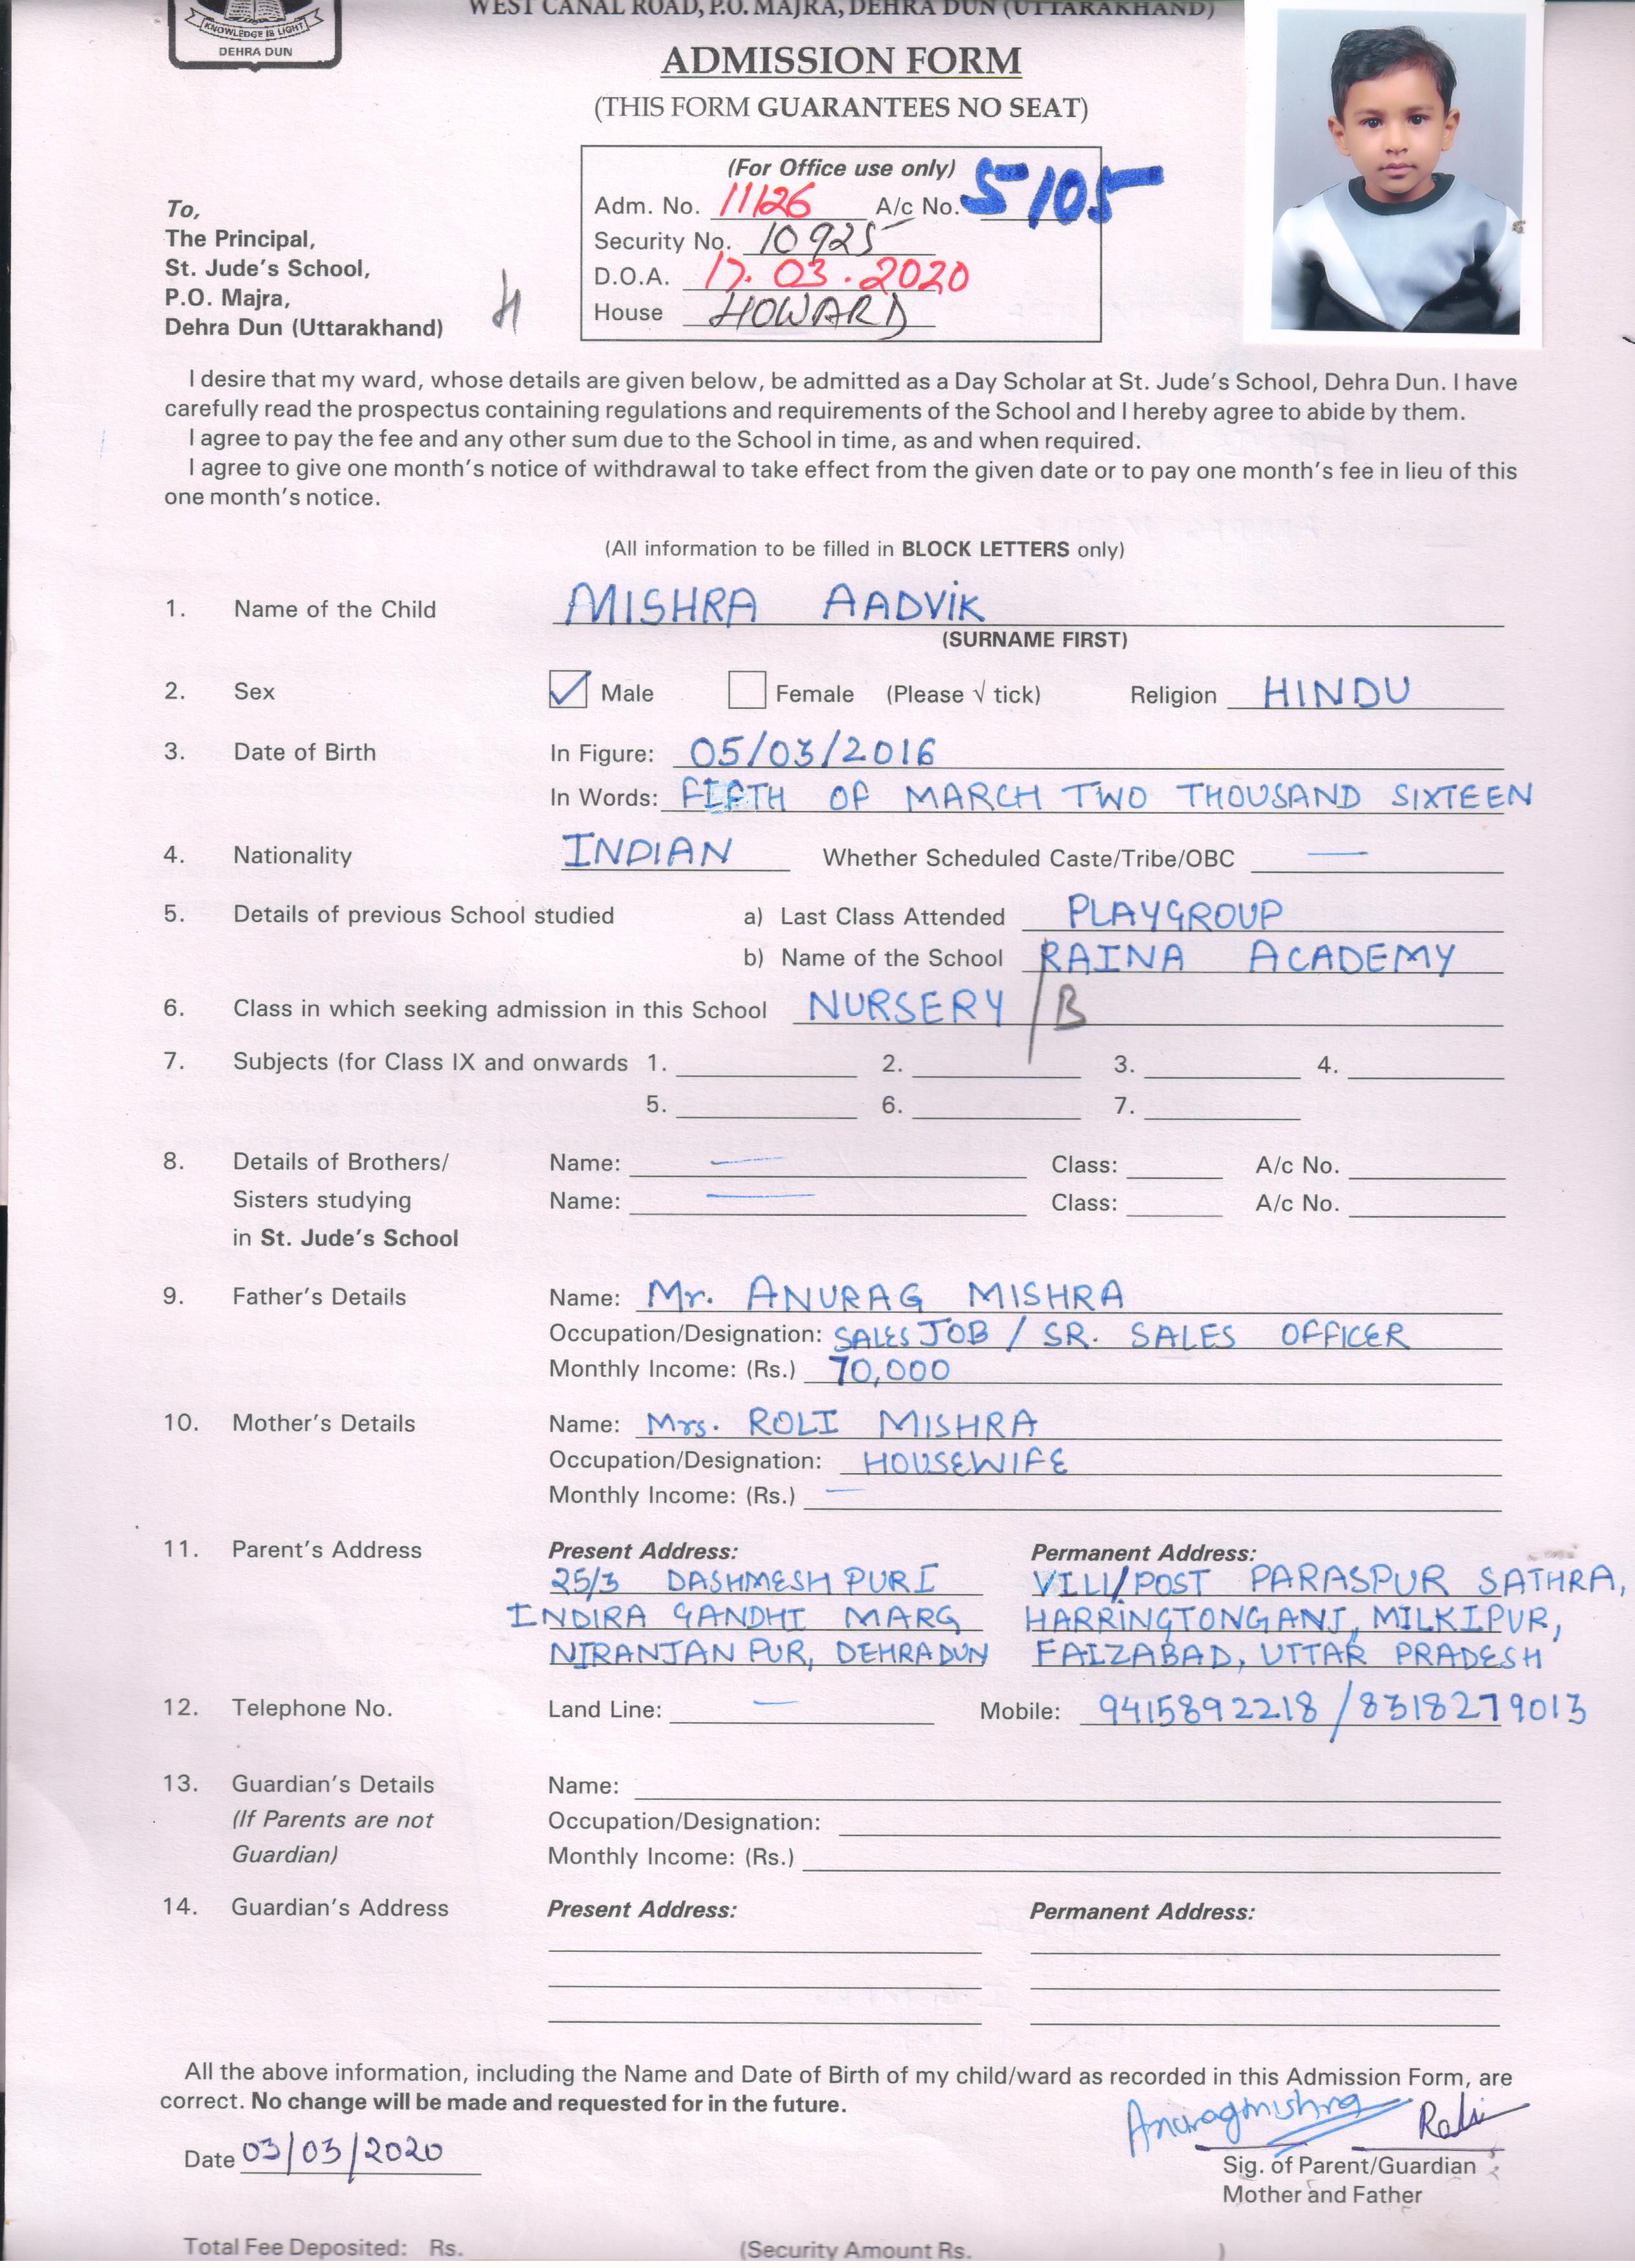 WEST CANAL ROAD, P.O. MAJRA, DEHRA DUN (UTTARAKHAND)
KNOWLEDGE IS LIGHT
DEHRA DUN
ADMISSION FORM
(THIS FORM GUARANTEES NO SEAT)
(For Office use only)
Adm. No. 11126 A/c No. 5105
Security No. 10925
D.O.A. 17.03.2020
House HOWARD
To,
The Principal,
St. Jude's School,
P.O. Majra,
Dehra Dun (Uttarakhand)
I desire that my ward, whose details are given below, be admitted as a Day Scholar at St. Jude's School, Dehra Dun. I have
carefully read the prospectus containing regulations and requirements of the School and I hereby agree to abide by them.
I agree to pay the fee and any other sum due to the School in time, as and when required.
I agree to give one month's notice of withdrawal to take effect from the given date or to pay one month's fee in lieu of this
one month's notice.
(All information to be filled in BLOCK LETTERS only)
1. Name of the Child MISHRA AADVIK
(SURNAME FIRST)
2. Sex Male Female (Please √ tick) Religion HINDU
3. Date of Birth In Figure: 05/03/2016
In Words: FIFTH OF MARCH TWO THOUSAND SIXTEEN
4. Nationality INDIAN Whether Scheduled Caste/Tribe/OBC —
5. Details of previous School studied a) Last Class Attended PLAYGROUP
b) Name of the School RAINA ACADEMY
6. Class in which seeking admission in this School NURSERY / B
7. Subjects (for Class IX and onwards 1. 2. 3. 4.
5. 6. 7.
8. Details of Brothers/ Name: — Class: A/c No.
Sisters studying Name: — Class: A/c No.
in St. Jude's School
9. Father's Details Name: Mr. ANURAG MISHRA
Occupation/Designation: SALES JOB / SR. SALES OFFICER
Monthly Income: (Rs.) 70,000
10. Mother's Details Name: Mrs. ROLI MISHRA
Occupation/Designation: HOUSEWIFE
Monthly Income: (Rs.) —
11. Parent's Address Present Address: Permanent Address:
25/3 DASHMESH PURI VILL/POST PARASPUR SATHRA,
INDIRA GANDHI MARG HARRINGTONGANJ, MILKIPUR,
NIRANJAN PUR, DEHRADUN FAIZABAD, UTTAR PRADESH
12. Telephone No. Land Line: — Mobile: 9415892218 / 8318279013
13. Guardian's Details Name:
(If Parents are not Occupation/Designation:
Guardian) Monthly Income: (Rs.)
14. Guardian's Address Present Address: Permanent Address:
All the above information, including the Name and Date of Birth of my child/ward as recorded in this Admission Form, are
correct. No change will be made and requested for in the future.
Anuragmishra
Date 03/03/2020
Sig. of Parent/Guardian
Mother and Father
Total Fee Deposited: Rs. (Security Amount Rs. )